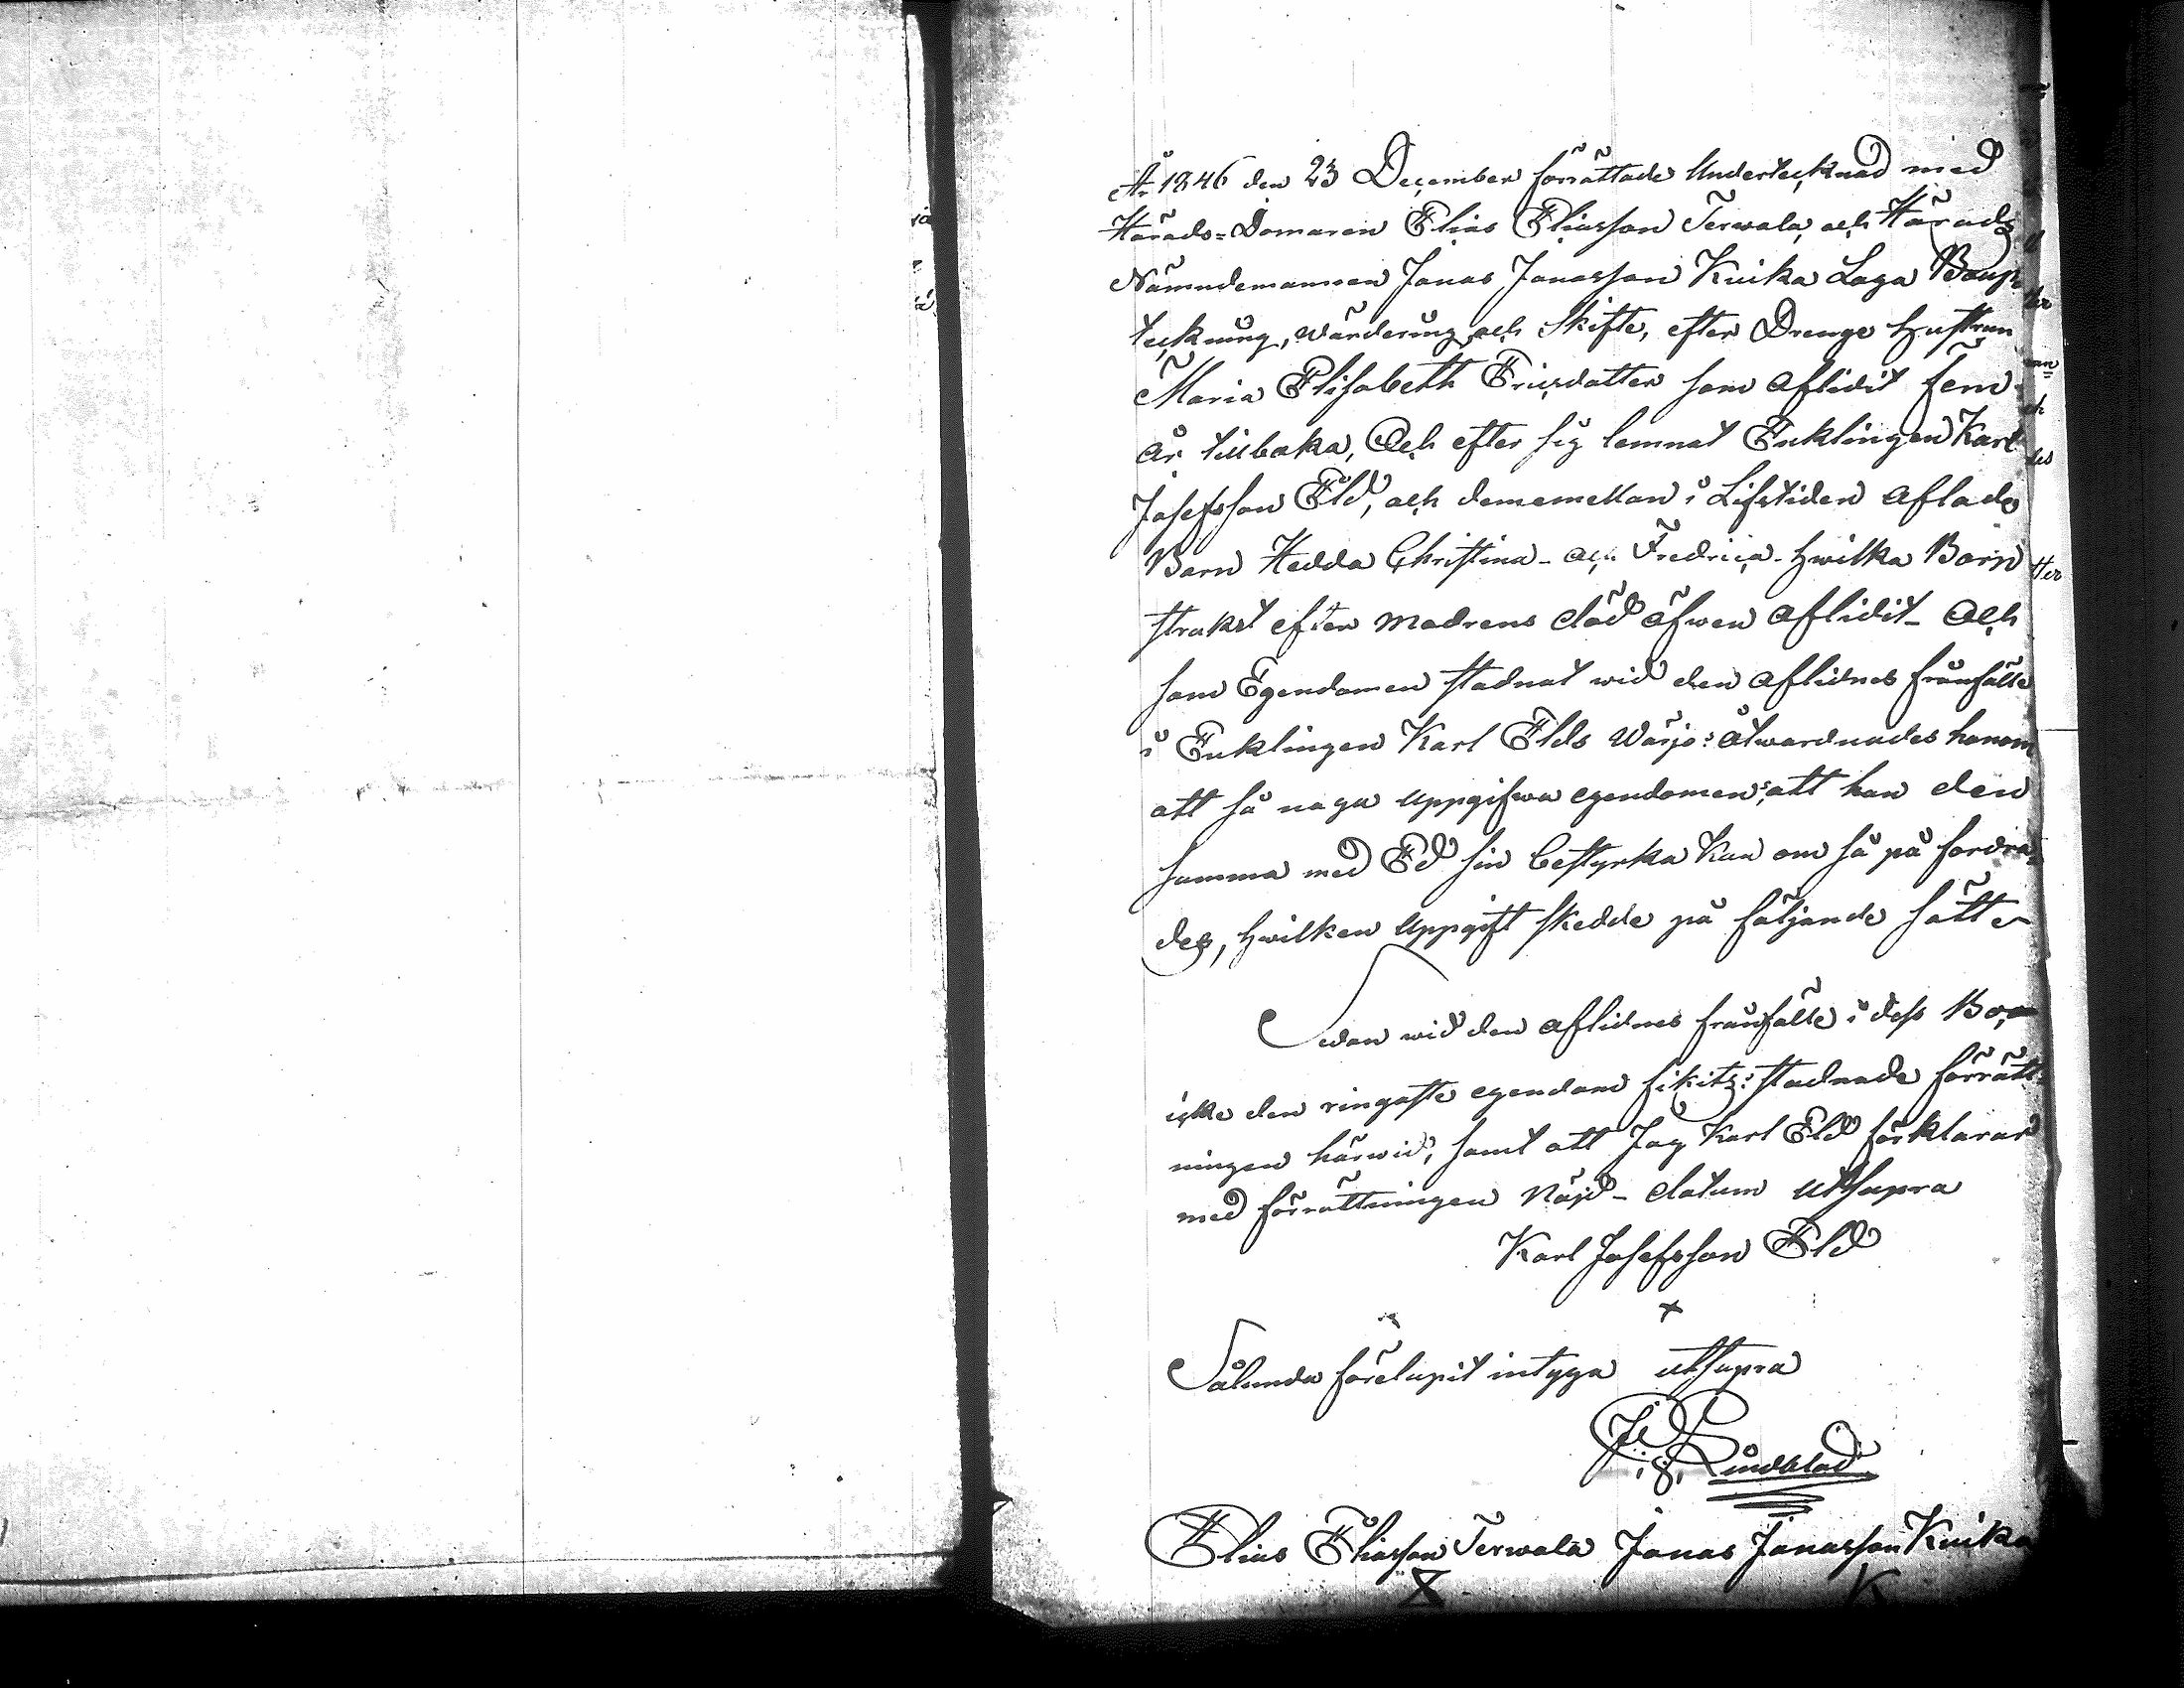 År 1846 den 23 December förrättade Undertecknad med
Härads=Domaren Elias Eliasson Terwala, och Härads
Nämndemannen Jonas Jonasson Knika Laga Boup
teckning, wärdering och skifte, efter Drenge hustrun
Maria Elisabeth Ericsdotter som aflidit fem
år tillbaka, Och efter sig lemnat Enklingen Karl
Josefsson Eld, och dememellan i Lifstiden aflade
Barn Hedda Christina - och Fredrica - hwilka Barn
strakst efter modrens död äfwen aflidit - Och
som Egendomen stadnat wid den aflidnes frånfälle
i Enklingen Karl Elds wärjo: åtwardnades honom
att så noga uppgifwa egendomen: att han den
samma med Ed sin bestyrka kan om så på fordra=
des, hwilken uppgift skedde på följande sätt -
Sedan wid den aflidnes frånfälle i dess Bo,
icke den ringaste egendom fikits: stadnade förrätt=
ningen härwid, samt att Jag Karl Eld förklarar
med förrättningen Nöjd - datum utsupra
Karl Josefsson Eld
x
Sålunda förelupit intyga utsupra
Lindblad
Elias Eliasson Terwala Jonas Jonasson Knika